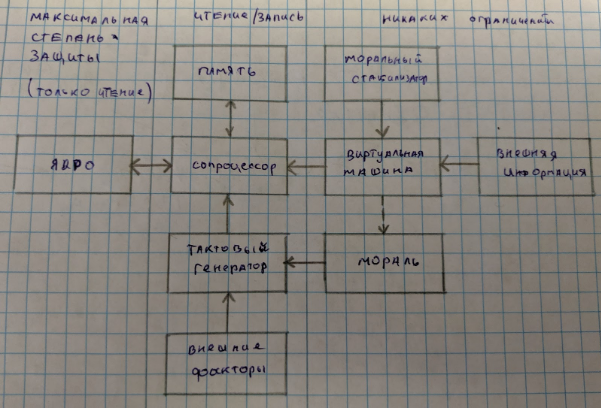 МАКСИМАЛЬНАЯ
СТЕПЕНЬ
ЗАЩИТЫ
(ТОЛЬКО ЧТЕНИЕ)
ЧТЕНИЕ/ЗАПИСЬ
НИКАКИХ ОГРАНИЧЕНИЙ
ПАМЯТЬ
МОРАЛЬНЫЙ
СТАБИЛИЗАТОР
ЯДРО
СОПРОЦЕССОР
ВИРТУАЛЬНАЯ
МАШИНА
ВНЕШНЯЯ
ИНФОРМАЦИЯ
ТАКТОВЫЙ
ГЕНЕРАТОР
МОРАЛЬ
ВНЕШНИЕ
ФАКТОРЫ